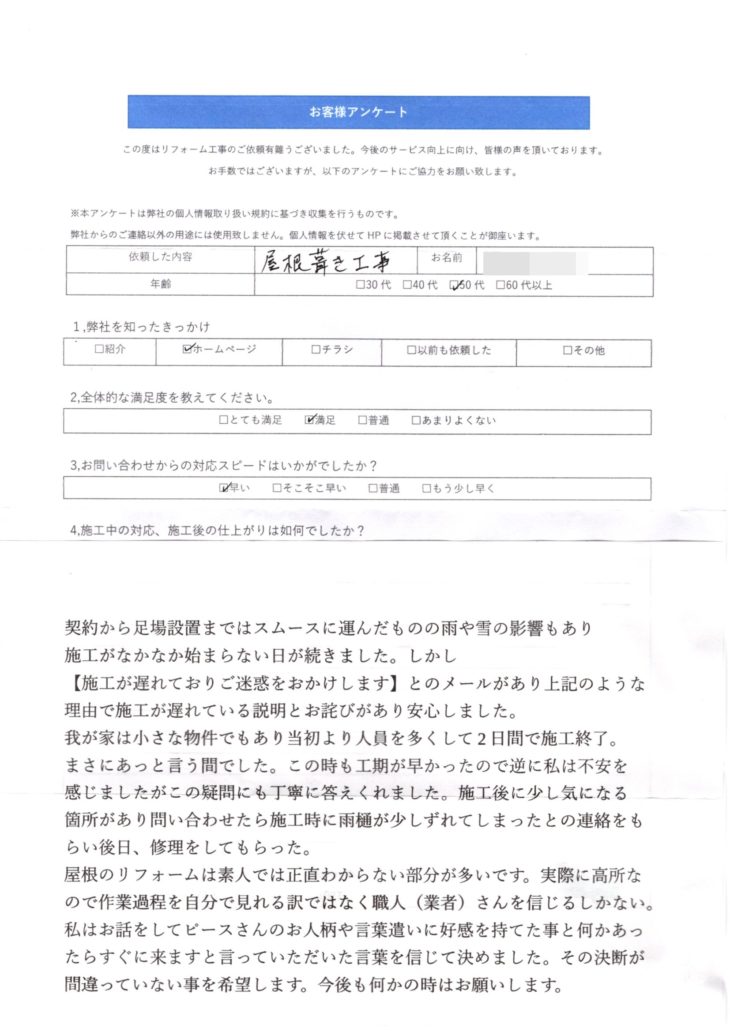 お客様アンケート
この度はリフォーム工事のご依頼有難うございました。今後のサービス向上に向け、皆様の声を頂いております。
お手数ではございますが、以下のアンケートにご協力をお願い致します。
※本アンケートは弊社の個人情報取り扱い規約に基づき収集を行うものです。
弊社からのご連絡以外の用途には使用致しません。個人情報を伏せてHPに掲載させて頂くことが御座います。
依頼した内容 屋根葺き工事 お名前
年齢 □30代 □40代 ☑50代 □60代以上
1,弊社を知ったきっかけ
□紹介 ☑ホームページ □チラシ □以前も依頼した □その他
2,全体的な満足度を教えてください。
□とても満足 ☑満足 □普通 □あまりよくない
3,お問い合わせからの対応スピードはいかがでしたか？
☑早い □そこそこ早い □普通 □もう少し早く
4,施工中の対応、施工後の仕上がりは如何でしたか？
契約から足場設置まではスムースに運んだものの雨や雪の影響もあり
施工がなかなか始まらない日が続きました。しかし
【施工が遅れておりご迷惑をおかけします】とのメールがあり上記のような
理由で施工が遅れている説明とお詫びがあり安心しました。
我が家は小さな物件でもあり当初より人員を多くして2日間で施工終了。
まさにあっと言う間でした。この時も工期が早かったので逆に私は不安を
感じましたがこの疑問にも丁寧に答えくれました。施工後に少し気になる
箇所があり問い合わせたら施工時に雨樋が少しずれてしまったとの連絡をも
らい後日、修理をしてもらった。
屋根のリフォームは素人では正直わからない部分が多いです。実際に高所な
ので作業過程を自分で見れる訳ではなく職人（業者）さんを信じるしかない。
私はお話をしてピースさんのお人柄や言葉遣いに好感を持てた事と何かあっ
たらすぐに来ますと言っていただいた言葉を信じて決めました。その決断が
間違っていない事を希望します。今後も何かの時はお願いします。